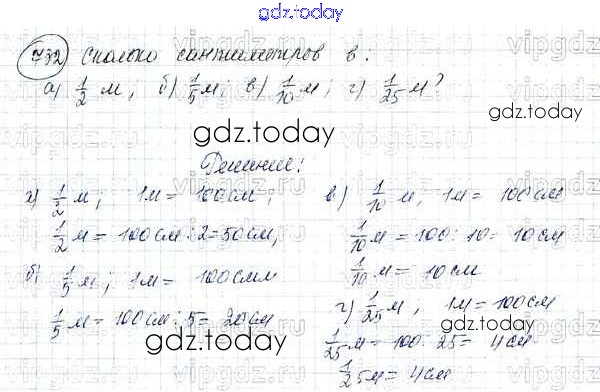 gdz.today
№732 Сколько сантиметров в:
а) 1/2 м, б) 1/5 м; в) 1/10 м; г) 1/25 м?
gdz.today
Решение:
а) 1/2 м; 1м = 100 см;
1/2 м = 100 см : 2 = 50 см,
б) 1/5 м; 1м = 100 смм
1/5 м = 100 см : 5 = 20 см
в) 1/10 м, 1м = 100 см
1/10 м = 100 : 10 = 10 см
1/10 м = 10 см
г) 1/25 м, 1м = 100 см
1/25 м = 100 : 25 = 4 см
1/25 м = 4 см
gdz.today
gdz.today